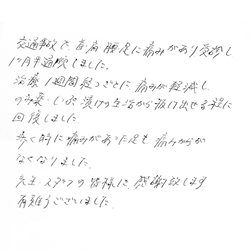 交通事故で、首、肩、腰、足に痛みがあり受診し
1ヶ月半通院しました。
治療1週間経つごとに痛みが軽減し、
のみ薬・しっぷ漬けの生活から抜け出せる程に
回復しました。
歩く時に痛みがあった足も、痛みが
なくなりました。
先生、スタッフの皆様に、感謝致します
有難うございました。